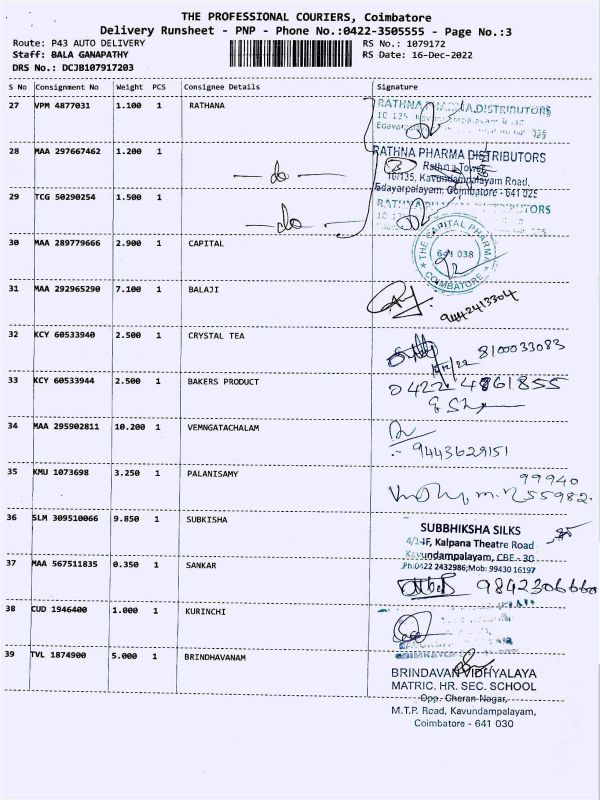 THE PROFESSIONAL COURIERS, Coimbatore
Delivery Runsheet - PNP - Phone No.:0422-3505555 - Page No.:3
Route: P43 AUTO DELIVERY RS No.: 1079172
Staff: BALA GANAPATHY RS Date: 16-Dec-2022
DRS No.: DCJB107917203
S No Consignment No Weight PCS Consignee Details Signature
27 VPM 4877031 1.100 1 RATHANA
RATHNA PHARMA DISTRIBUTORS
28 MAA 297667462 1.200 1 -do-
RATHNA PHARMA DISTRIBUTORS
Rathna Tower
10/135, Kavundampalayam Road,
Edayarpalayam, Coimbatore - 641 025
29 TCG 50290254 1.500 1 -do-
30 MAA 289779666 2.900 1 CAPITAL
THE CAPITAL PHARMA
641 038
COIMBATORE
31 MAA 292965290 7.100 1 BALAJI
9442413304
32 KCY 60533940 2.500 1 CRYSTAL TEA
8100033083
33 KCY 60533944 2.500 1 BAKERS PRODUCT
0422 4861855
34 MAA 295902811 10.200 1 VEMNGATACHALAM
9443629151
35 KMU 1073698 3.250 1 PALANISAMY
99940
55982
36 SLM 309510066 9.850 1 SUBKISHA
SUBBHIKSHA SILKS
4/14F, Kalpana Theatre Road
Kavundampalayam, CBE - 30
Ph:0422 2432986;Mob: 99430 16197
37 MAA 567511835 0.350 1 SANKAR
9842306660
38 CUD 1946400 1.000 1 KURINCHI
39 TVL 1874900 5.000 1 BRINDHAVANAM
BRINDAVAN VIDHYALAYA
MATRIC. HR. SEC. SCHOOL
Opp. Cheran Nagar,
M.T.P. Road, Kavundampalayam,
Coimbatore - 641 030